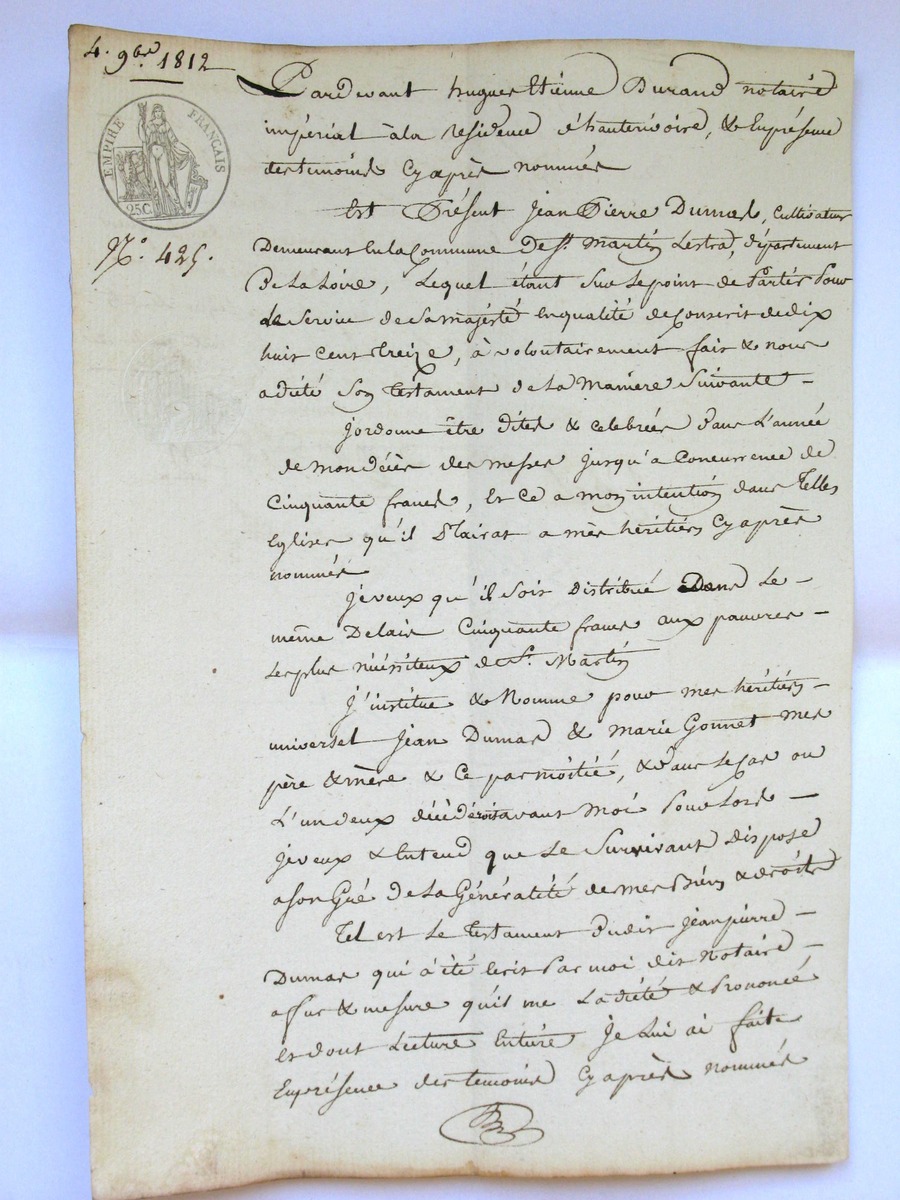 4. 9bre 1812
EMPIRE FRANÇAIS
25C.
N.° 425.
Pardevant hugues Etienne Durand notaire
impérial à la residence d'hauterivoire, & En présence
des temoins Cy après nommés
Est Présent Jean Pierre Dumas, Cultivateur
Demeurant En la Commune De St. Martin Lestra, département
De La Loire, Lequel étant Sur le point de Partir Pour
le Service de Sa majésté En qualité de Conscrit de dix
huit Cent treize, à volontairement fait & nous
a dicté Son testament de La Maniere Suivante -
J'ordonne être dites & celebrées Dans L'année
de mon décès des messes jusqu'a Concurrence de
Cinquante francs, Et Ce a mon intention dans Telles
Eglises qu'il Plairat a mes héritiers Cy après
nommés
Je veux qu'il Soit distribué Dans Le -
même Delais Cinquante francs aux pauvres -
Les plus niéssiteux de St. Martin
J'institue & Nomme pour mes héritiers -
universel Jean Dumas & Marie Gonnet mes
père & mère & Ce par moitié, & Dans Le Cas ou
L'un deux décèderoit avant Moi Pour Lors -
Je veux & Entend que Le Survivant dispose
a Son Gré De La Généralité de mes Biens & droits
Tel est Le testament Dudit Jean pierre -
Dumas qui à été Ecrit Par moi dit Notaire -
a fur & mesure qu'il me La dicté & Prononcé
Et dont Lecture Entière Je Lui ai faite
En présence des temoins Cy après nommés